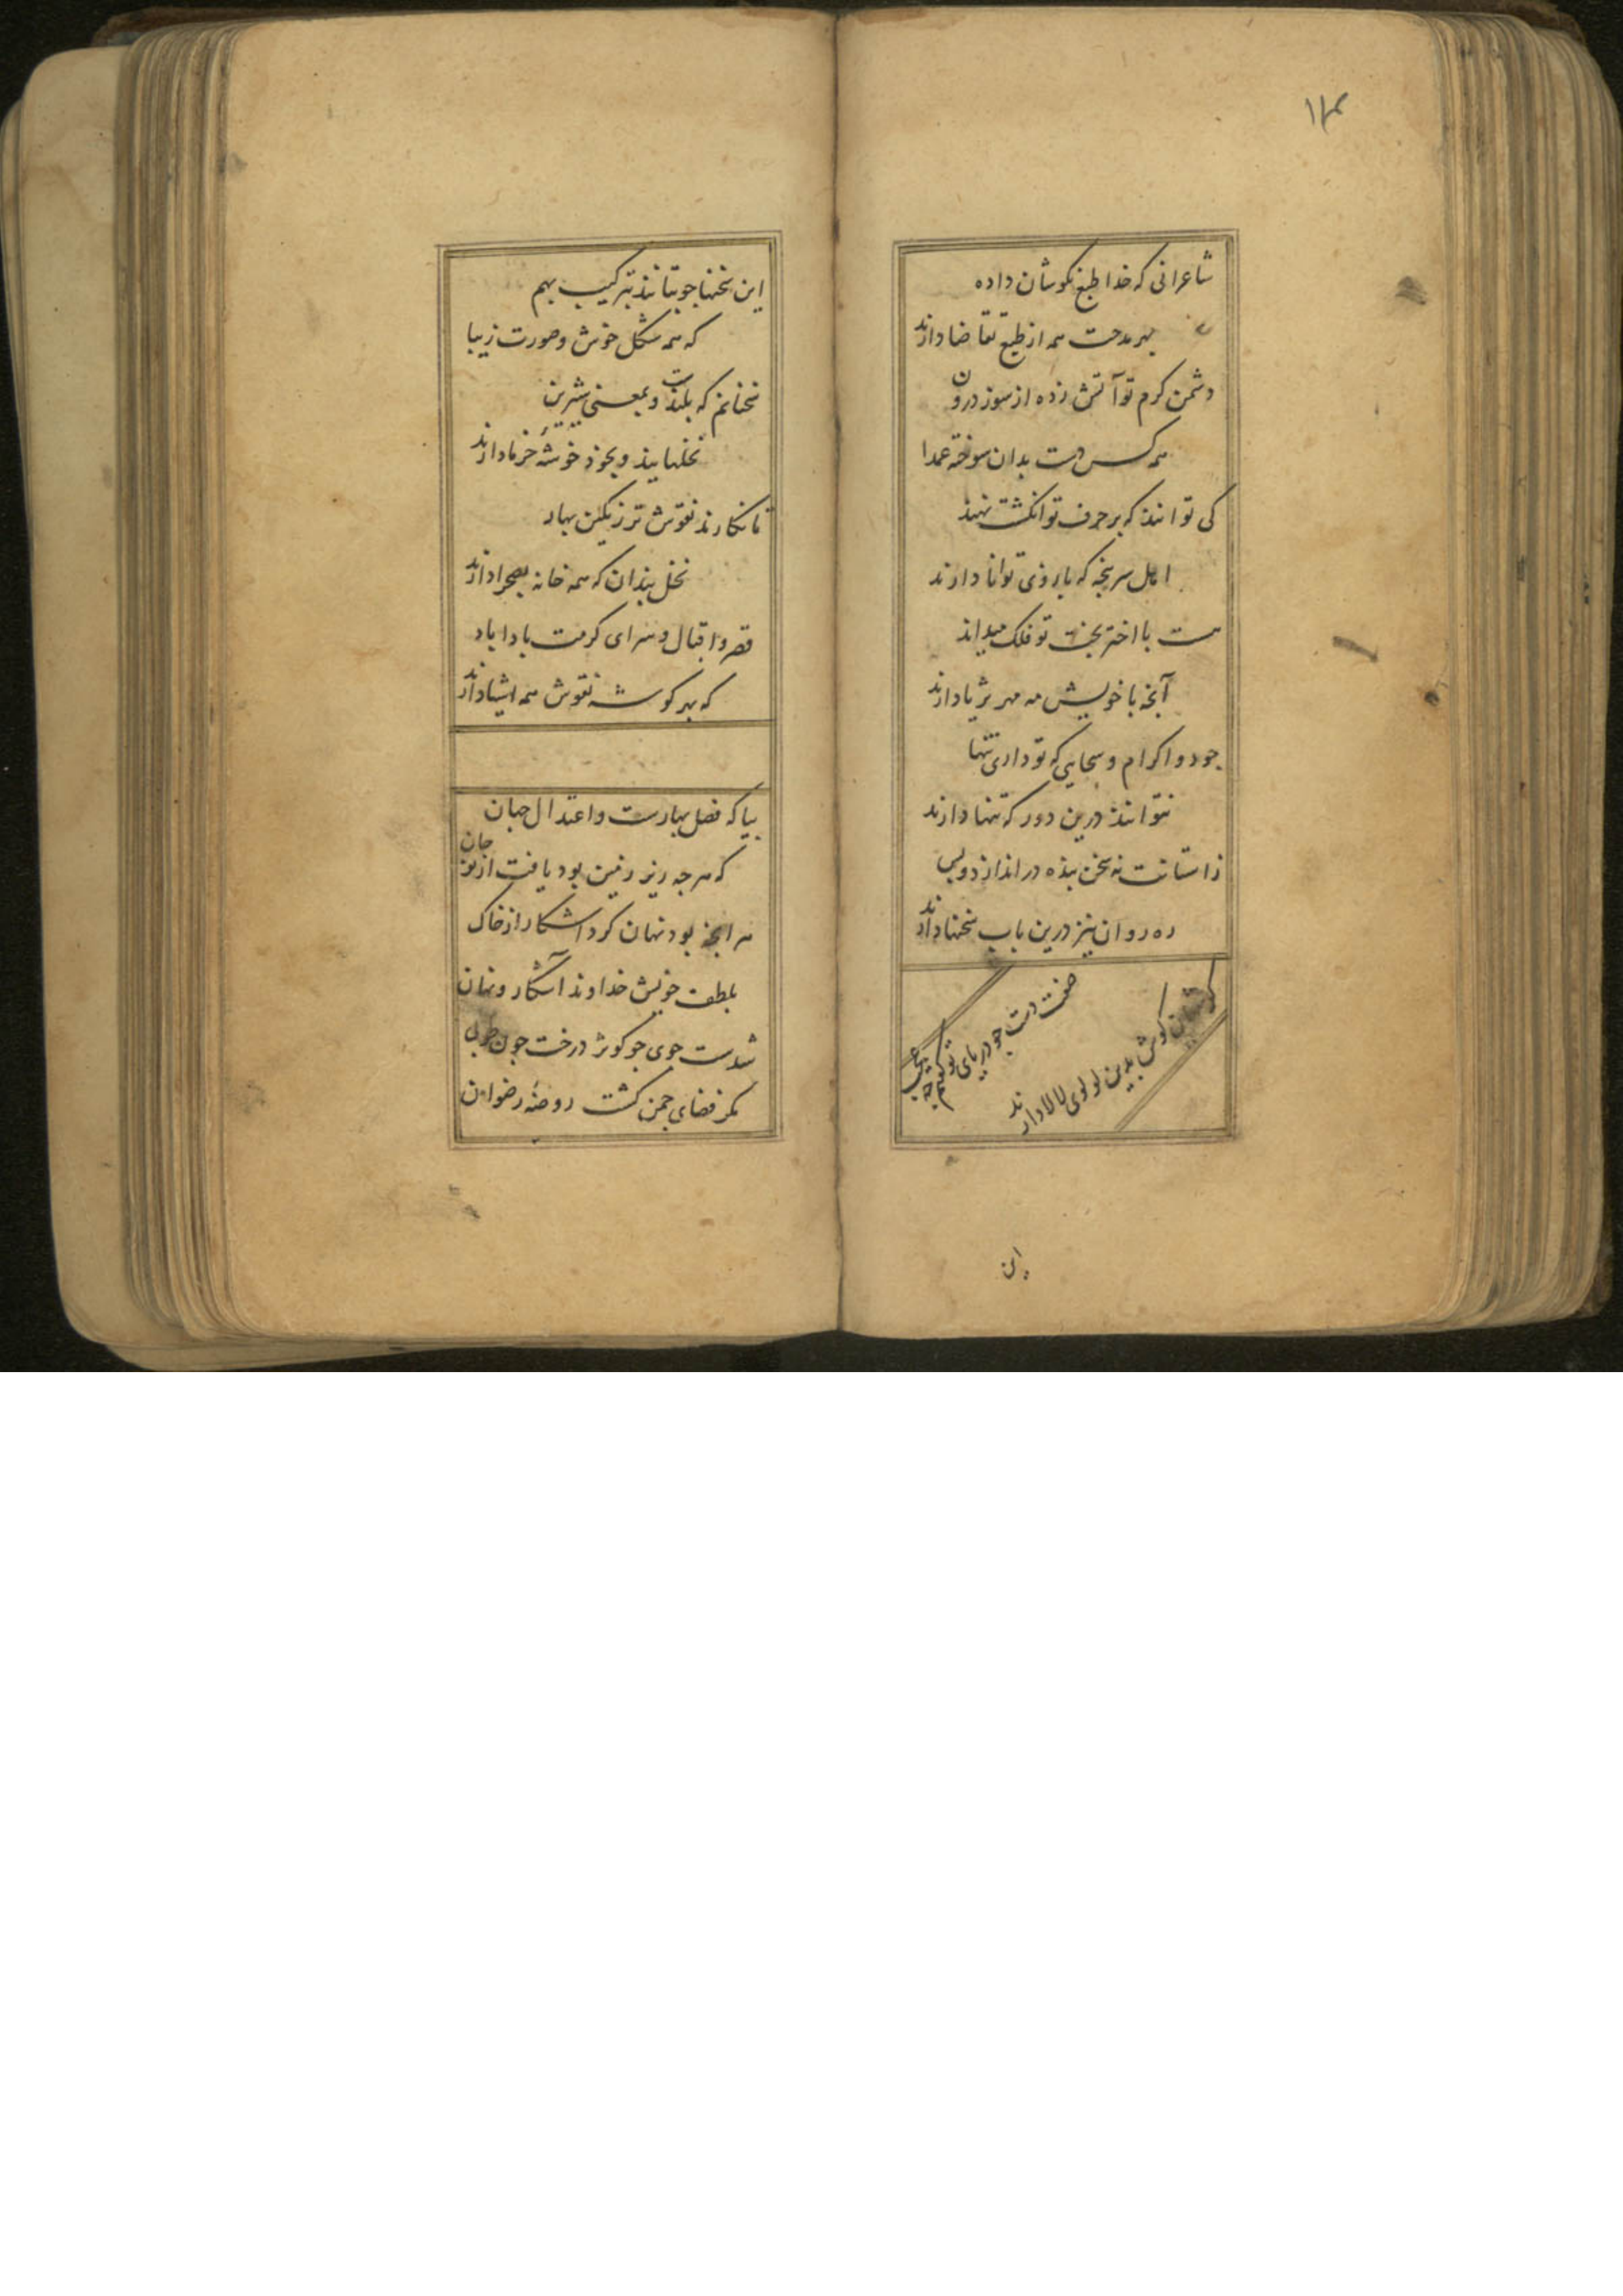 ۱۸۴
شاعرانی که خدا طبع نکوشان داده
بهر مدحت همه از طبع تقاضا دارند
دشمن کرم تو آتش زده از سوز درون
همه کس دست بدان سوخته عمدا
کی توانند که بر حرف تو انگشت نهند
اهل سرپنجه که بازوی توانا دارند
هست با اختر بخت تو فلک میداند
آنچه با خویش مه مهر ثریا دارند
جود و اکرام و سخایی که تو داری تنها
نتوانند درین دور که تنها دارند
زاستانت نه سخن بنده در انداز دوبس
ره روان نیز درین باب سخنها دارند
صفت دست چو دریای تو گفتم چه عجب
گوش بدین لولوی لالا دارند
این
این سخنها چو بتانند بترکیب بهم
که همه شکل خوش و صورت زیبا
سخنانم که بلندست و بمعنی شیرین
نخلهایند و بخود خوشه خرما دارند
تا نکارند نقوش تر رنگین بهار
نخل بندان که همه خانه بصحرا دارند
قصر و اقبال و سرای کرمت باد اباد
که بهر گوشه نقوش همه اشیا دارند
بیا که فصل بهارست و اعتدال جهان
که هرچه زیر زمین بود یافت از نو جان
هر انچه بود نهان کرد اشکار از خاک
بلطف خویش خداوند آشکار و نهان
شدست جوی چو کوثر درخت چون طوبی
مکر فضای چمن کشت روضه رضوان